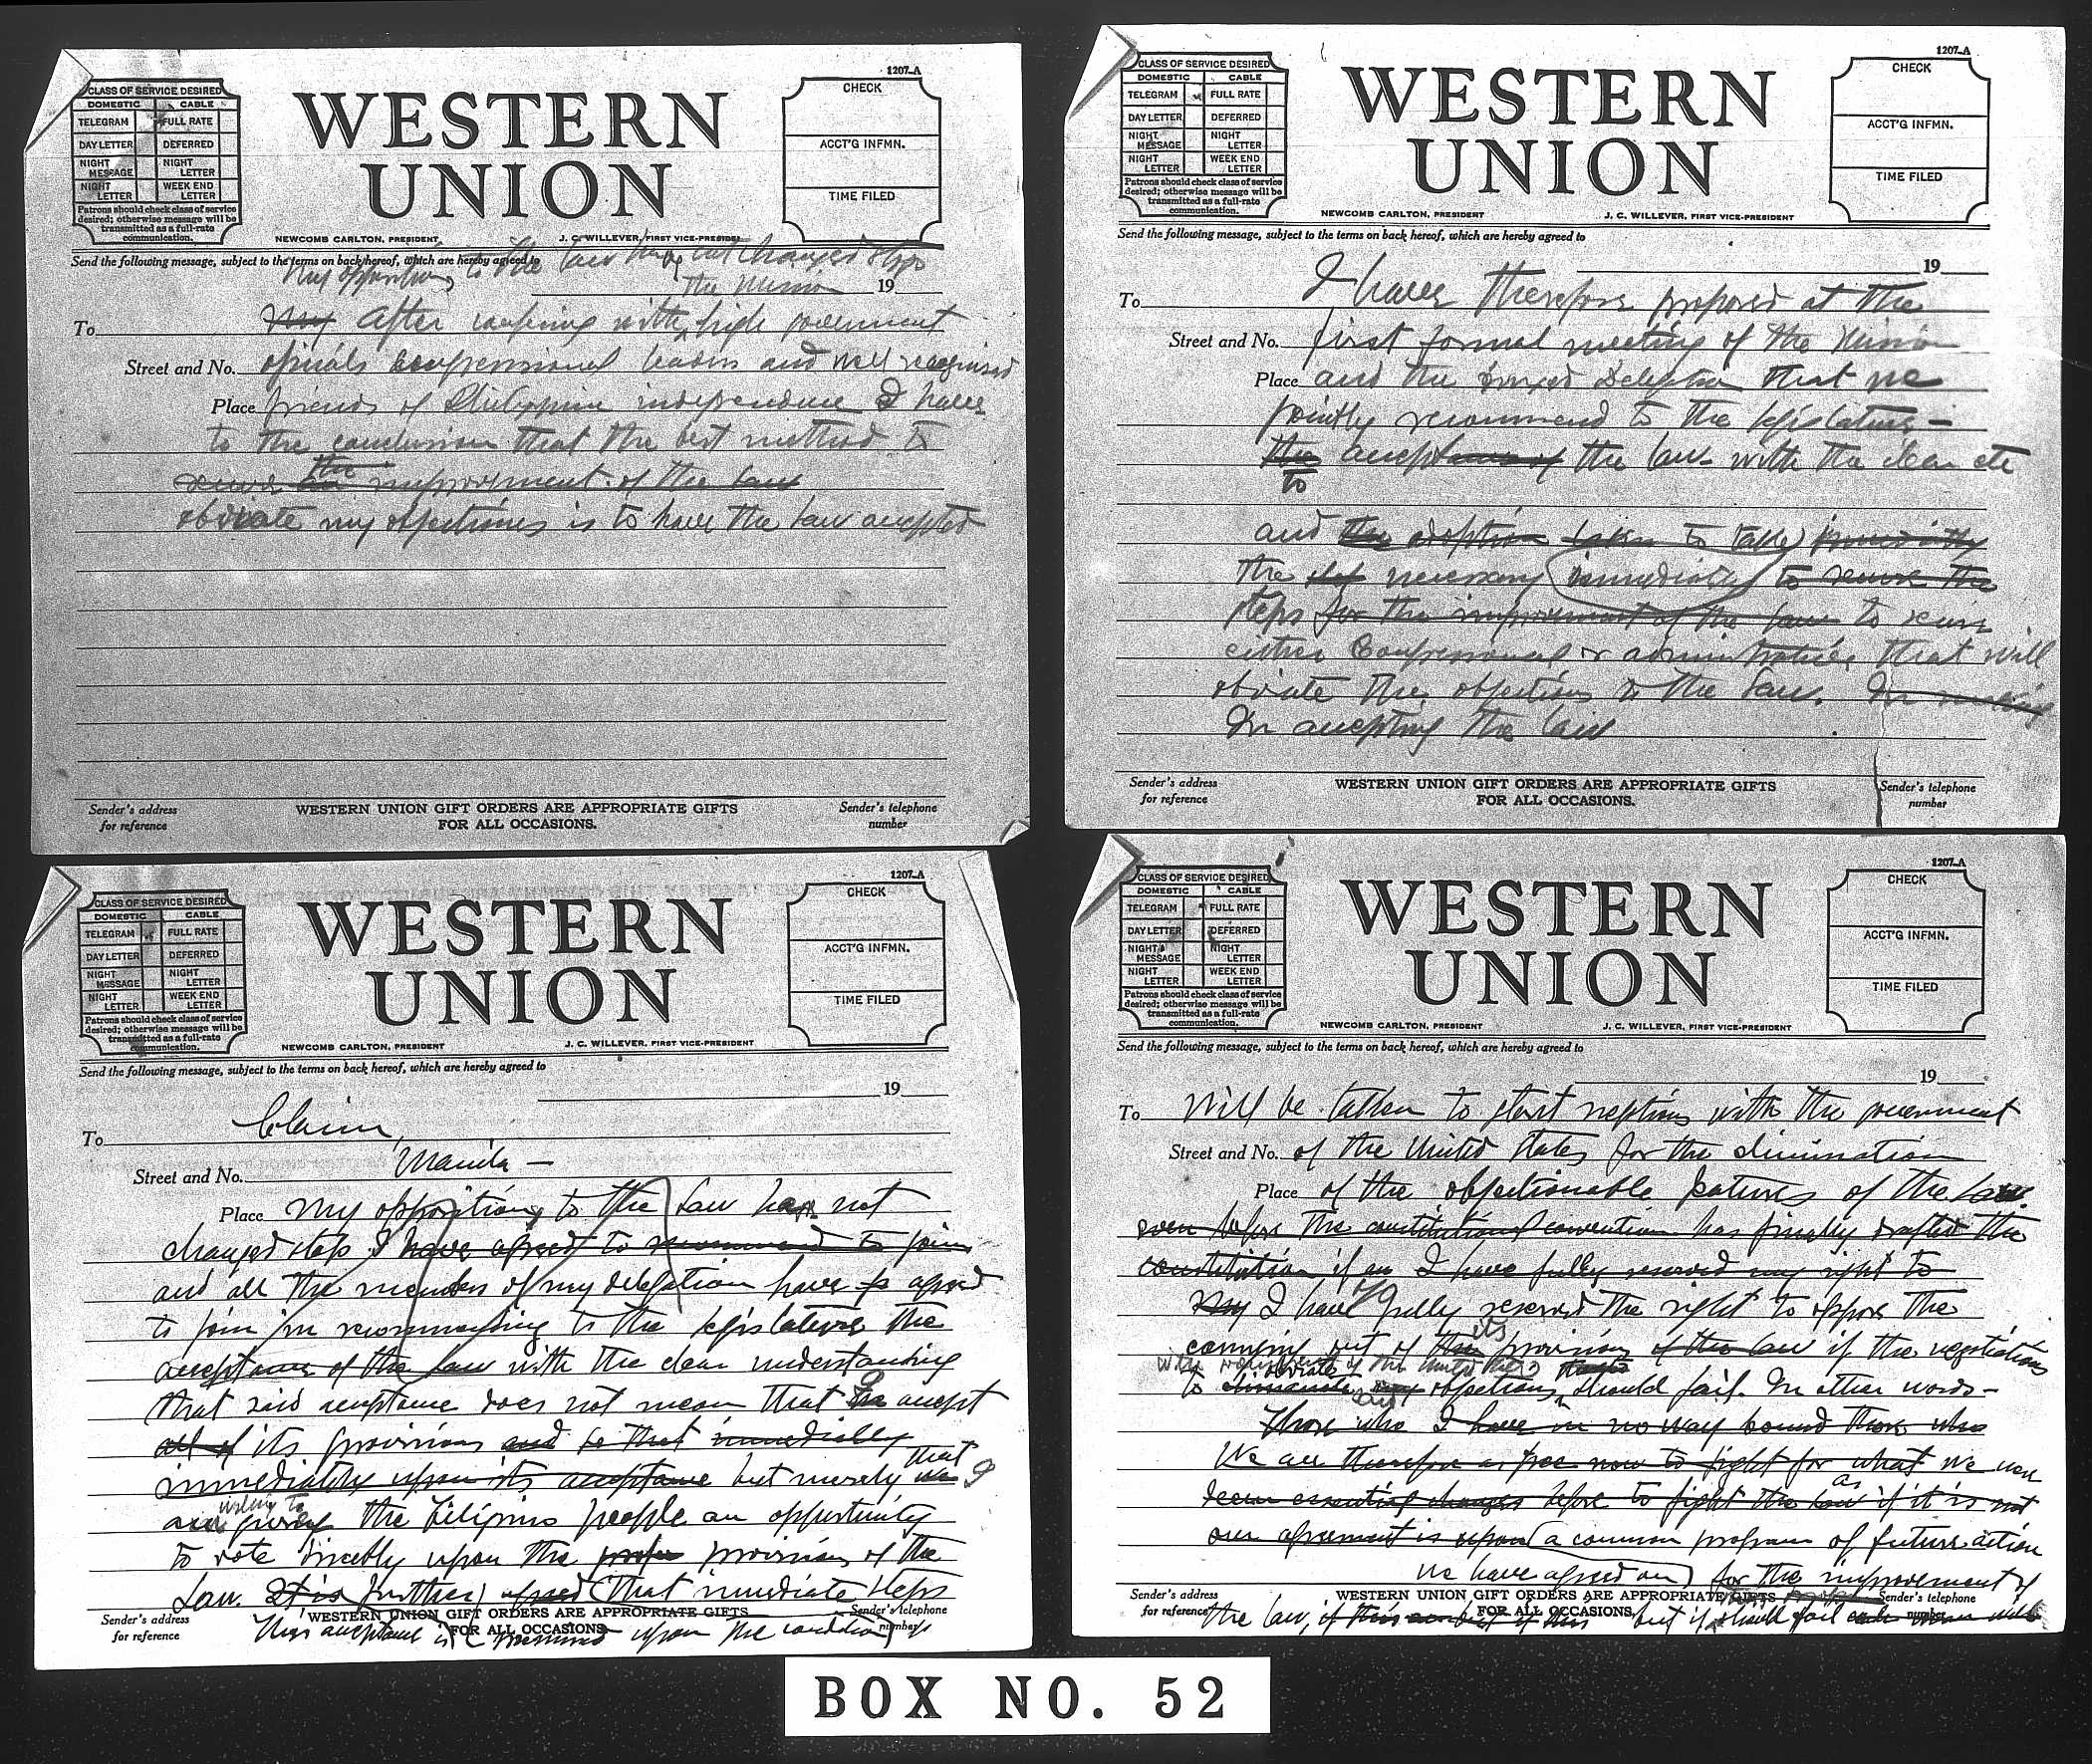 1207-A
CLASS OF SERVICE DESIRED
DOMESTIC CABLE
TELEGRAM FULL RATE
DAY LETTER DEFERRED
NIGHT MESSAGE NIGHT LETTER
NIGHT LETTER WEEK END LETTER
Patrons should check class of service
desired; otherwise message will be
transmitted as a full-rate
communication.
WESTERN
UNION
CHECK
ACCT'G INFMN.
TIME FILED
NEWCOMB CARLTON, PRESIDENT J. C. WILLEVER, FIRST VICE-PRESIDENT
Send the following message, subject to the terms on back hereof, which are hereby agreed to
My opposition to the law has not changed stop
the Mission 19
To My After conferring with high government
Street and No. officials Congressional leaders and well recognized
Place friends of Philippine independence I have
to the conclusion that the best method to
secure the improvement of the law
obviate my objections is to have the law accepted
Sender's address
for reference
WESTERN UNION GIFT ORDERS ARE APPROPRIATE GIFTS
FOR ALL OCCASIONS.
Sender's telephone
number
1207-A
CLASS OF SERVICE DESIRED
DOMESTIC CABLE
TELEGRAM FULL RATE
DAY LETTER DEFERRED
NIGHT MESSAGE NIGHT LETTER
NIGHT LETTER WEEK END LETTER
Patrons should check class of service
desired; otherwise message will be
transmitted as a full-rate
communication.
WESTERN
UNION
CHECK
ACCT'G INFMN.
TIME FILED
NEWCOMB CARLTON, PRESIDENT J. C. WILLEVER, FIRST VICE-PRESIDENT
Send the following message, subject to the terms on back hereof, which are hereby agreed to
19
To I have therefore proposed at the
Street and No. first formal meeting of the Mission
Place and the Delegation that we
jointly recommend to the legislature -
the acceptance of the law with the clear etc
to
and the adoption taken to take
the step necessary immediately to secure the
steps for the improvement of the law to secure
either Congressional or administrative that will
obviate the objections to the law. In
In accepting the law
Sender's address
for reference
WESTERN UNION GIFT ORDERS ARE APPROPRIATE GIFTS
FOR ALL OCCASIONS.
Sender's telephone
number
1207-A
CLASS OF SERVICE DESIRED
DOMESTIC CABLE
TELEGRAM FULL RATE
DAY LETTER DEFERRED
NIGHT MESSAGE NIGHT LETTER
NIGHT LETTER WEEK END LETTER
Patrons should check class of service
desired; otherwise message will be
transmitted as a full-rate
communication.
WESTERN
UNION
CHECK
ACCT'G INFMN.
TIME FILED
NEWCOMB CARLTON, PRESIDENT J. C. WILLEVER, FIRST VICE-PRESIDENT
Send the following message, subject to the terms on back hereof, which are hereby agreed to
19
To Clarin,
Street and No. Manila -
Place My opposition to the law has not
changed stop I have agreed to recommend to join
and all the members of my delegation have to agreed
to join in recommending to the legislature the
acceptance of the law with the clear understanding
that said acceptance does not mean that I accept
all of its provisions and so that immediately
immediately upon its acceptance but merely that I
am willing to giving the Filipino people an opportunity
to vote directly upon the provisions of the
Law. It is further agreed that immediate steps
This acceptance is premised upon the condition
Sender's address
for reference
WESTERN UNION GIFT ORDERS ARE APPROPRIATE GIFTS
FOR ALL OCCASIONS.
Sender's telephone
number
1207-A
CLASS OF SERVICE DESIRED
DOMESTIC CABLE
TELEGRAM FULL RATE
DAY LETTER DEFERRED
NIGHT MESSAGE NIGHT LETTER
NIGHT LETTER WEEK END LETTER
Patrons should check class of service
desired; otherwise message will be
transmitted as a full-rate
communication.
WESTERN
UNION
CHECK
ACCT'G INFMN.
TIME FILED
NEWCOMB CARLTON, PRESIDENT J. C. WILLEVER, FIRST VICE-PRESIDENT
Send the following message, subject to the terms on back hereof, which are hereby agreed to
19
To Will be taken to start neptions with the government
Street and No. of the United States for the elimination
Place of the objectionable features of the law
even before the constitutional convention has finally drafted the
constitution if an I have fully reserved my right to
My I have fully reserved the right to oppose the
carrying out of its provisions of the law if the negotiations
with government of the United States
to eliminate obviate my objections should fail. In other words -
those who I have in no way bound those who
We are therefore as free now to fight for what we
deem essential changes before to fight the law as if it is not
our agreement is upon a common program of future action
we have agreed on for the improvement of
the law, if this but if should fail
Sender's address
for reference
WESTERN UNION GIFT ORDERS ARE APPROPRIATE GIFTS
FOR ALL OCCASIONS.
Sender's telephone
number
BOX NO. 52